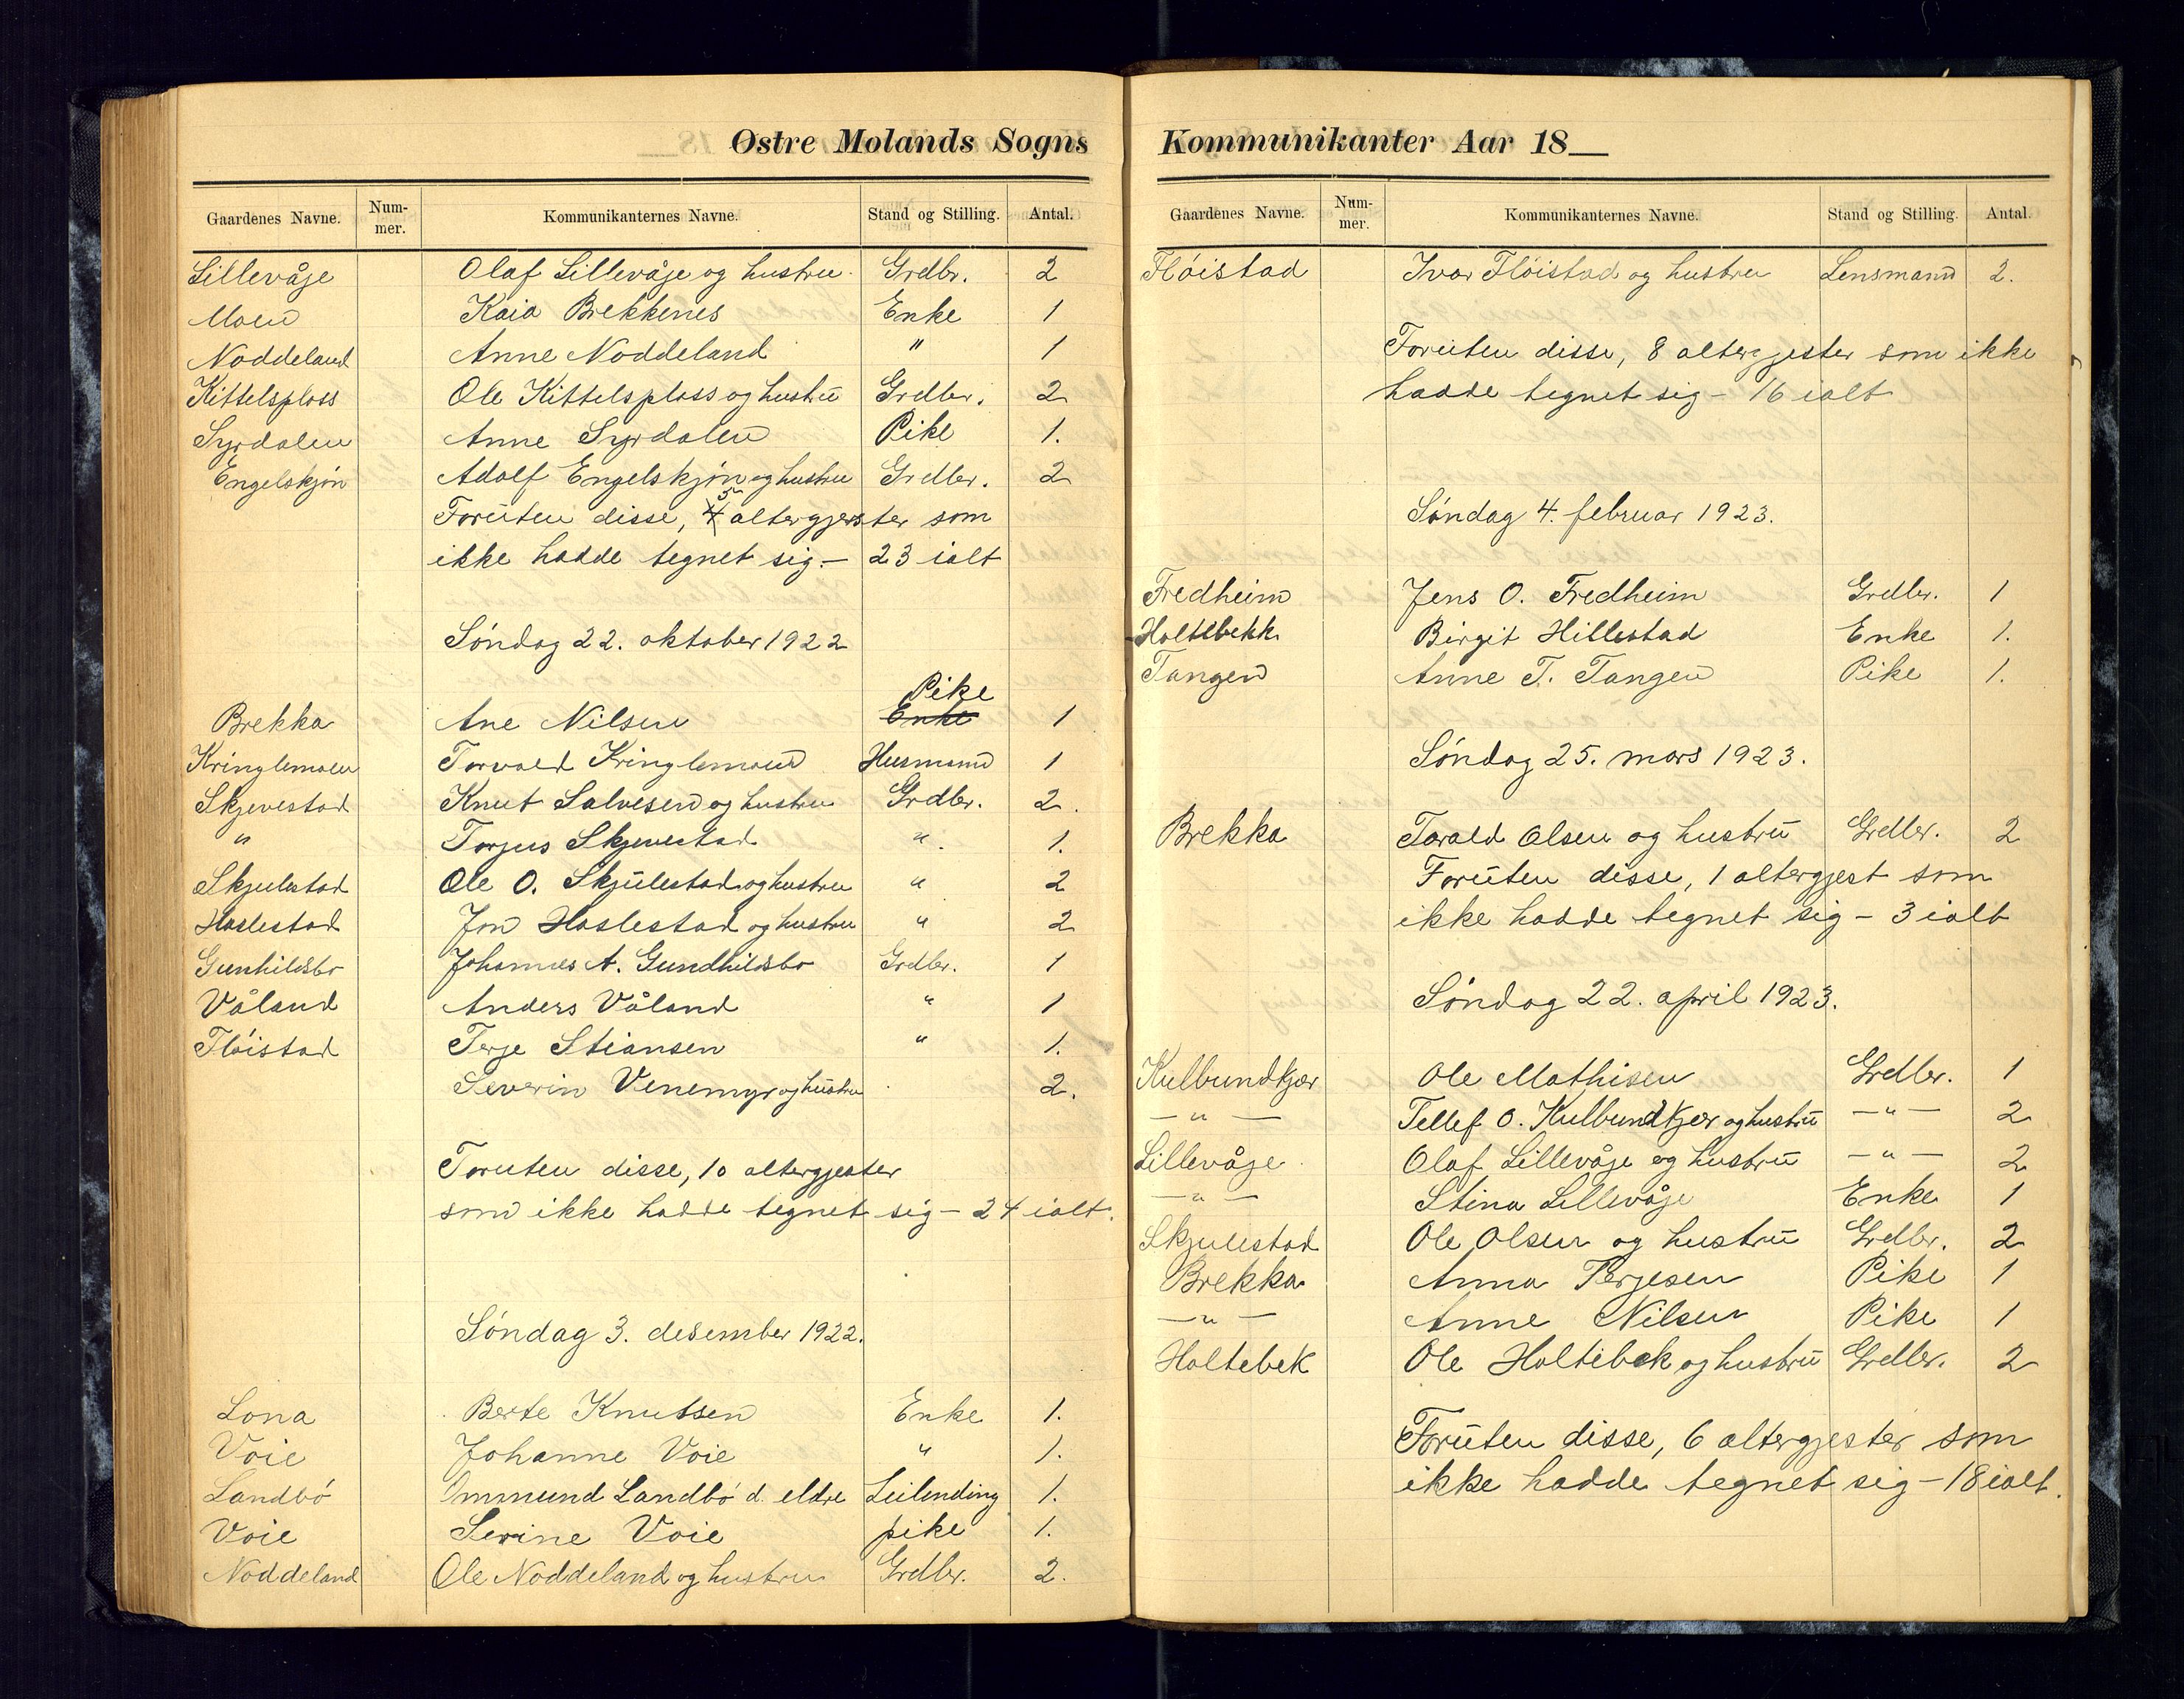 Østre Molands Sogns
Gaardenes Navne. Num-mer. Kommunikanternes Navne. Stand og Stilling. Antal.
Lillevåje Olaf Lillevåje og hustru Grdbr. 2
Moen Kaia Brekkenes Enke 1
Noddeland Anne Noddeland " 1
Kittelsplass Ole Kittelsplass og hustru Grdbr. 2
Syrdalen Anne Syrdalen Pike 1.
Engelskjøn Adolf Engelskjøn og hustru Grdbr. 2
Foruten disse, 5 altergjester som
ikke hadde tegnet sig. - 23 ialt
Søndag 22. oktober 1922
Pike
Brekka Ane Nilsen Enke 1
Kringlemoen Torvald Kringlemoen Husmand 1
Skjevestad Knut Salvesen og hustru Grdbr. 2.
" Torjus Skjevestad ". 1.
Skjulestad Ole O. Skjulestad og hustru " 2
Haslestad Jon Haslestad og hustru " 2
Gunhildsbo Johannes A. Gundhildsbo Grdbr. 1
Våland Anders Våland " 1
Fløistad Terje Stiansen " 1.
Severin Venemyr og hustru 2.
Foruten disse, 10 altergjester
som ikke hadde tegnet sig - 24 ialt.
Søndag 3. desember 1922.
Lona Berte Knutsen Enke 1.
Voie Johanne Voie " 1.
Landbø Ommund Landbø d. eldre Leilending 1.
Voie Serine Voie pike 1.
Noddeland Ole Noddeland og hustru Grdbr. 2.
Kommunikanter Aar 18
Gaardenes Navne. Num-mer. Kommunikanternes Navne. Stand og Stilling. Antal.
Fløistad Ivar Fløistad og hustru Lensmann 2.
Foruten disse, 8 altergjester som ikke
hadde tegnet sig - 16 ialt
Søndag 4. februar 1923.
Fredheim Jens O. Fredheim Grdbr. 1
Holtebekk Birgit Hillestad Enke 1.
Tangen Anne T. Tangen Pike 1.
Søndag 25. mars 1923.
Brekka Torald Olsen og hustru Grdbr. 2
Foruten disse, 1 altergjest som
ikke hadde tegnet sig - 3 ialt
Søndag 22. april 1923.
Kulbundkjær Ole Mathisen Grdbr. 1
— " — Tellef O. Kulbundkjær og hustru — " — 2
Lillevåje Olaf Lillevåje og hustru — " — 2
— " — Stina Lillevåje Enke 1
Skjulestad Ole Olsen og hustru Grdbr. 2
Brekka Anna Terjesen Pike 1
— " — Anne Nilsen Pike 1
Holtebek Ole Holtebek og hustru Grdbr. 2
Foruten disse, 6 altergjester som
ikke hadde tegnet sig - 18 ialt.